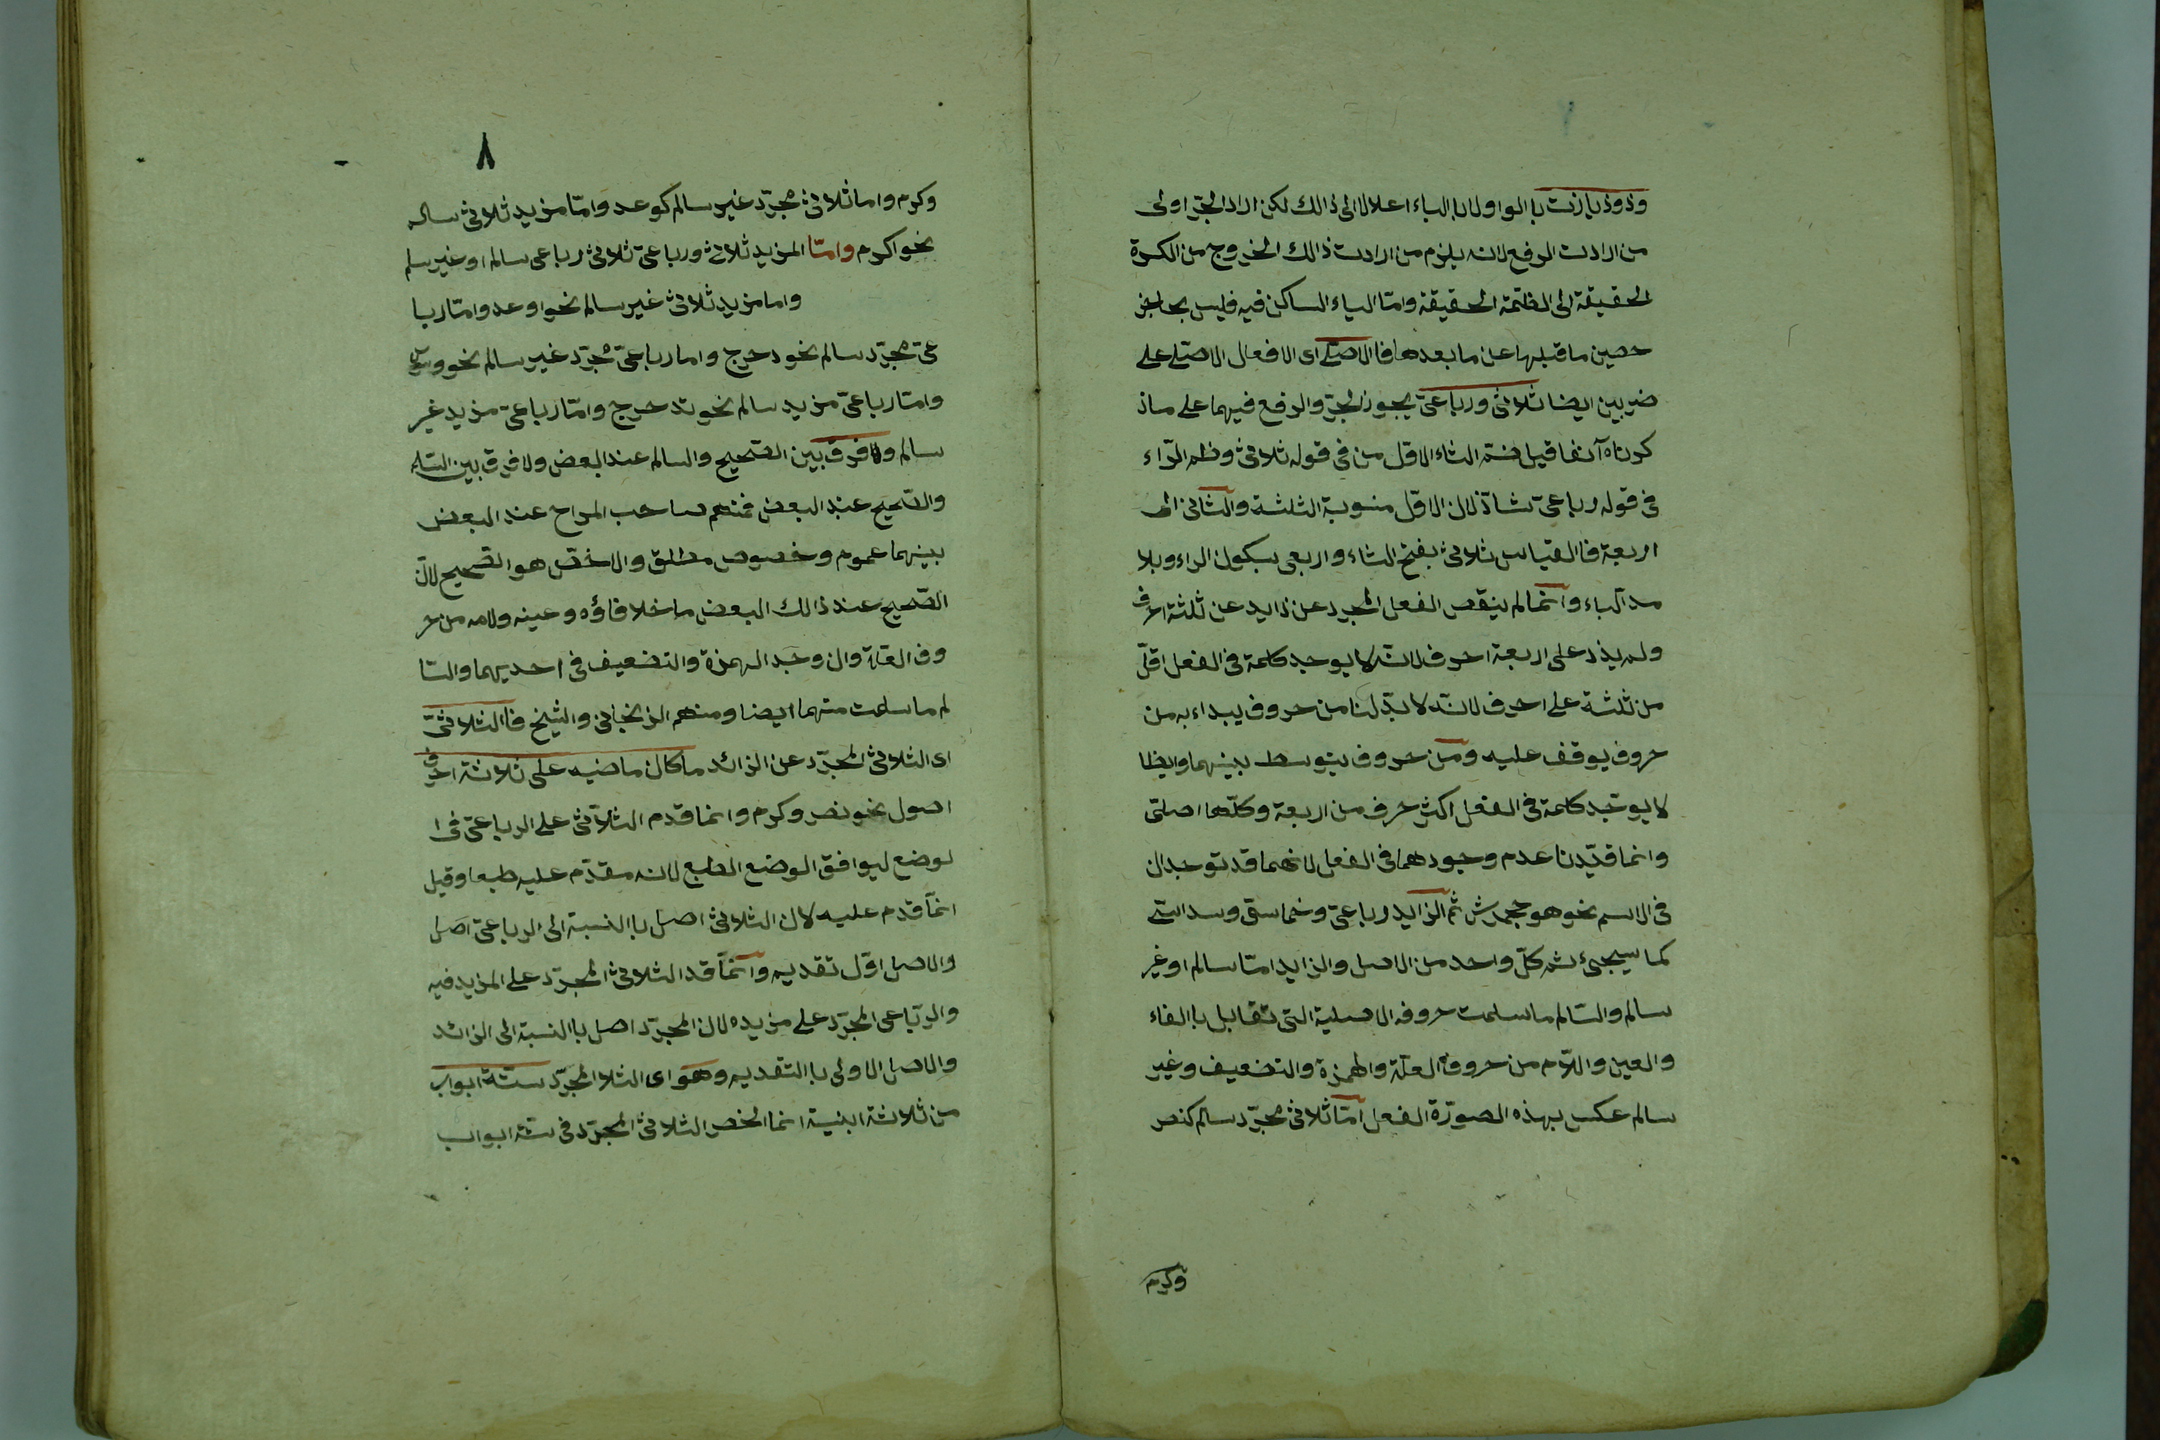 وذوذ بازنت بالواو لا بالياء اعلالا الى ذالك لكن اراد الجرّ اولى
من ارادت الرفع لانه يلزم من ارادت ذالك الخروج من الكسرة
الحقيقة الى الضمّة الحقيقة وامّا الياء الساكن فيه فليس بحاجز
حصين ما قبلها عن ما بعدها فالاصلى اى الافعال الاصلى على
ضربين ايضا ثلاثىّ ورباعىّ يجوز الجرّ والرفع فيهما على ماذ
كرناه آنفا قيل ضمّ الثاء الاوّل من فى قوله ثلاثىّ وضم الرّاء
فى قوله رباعىّ شاذ لان الاوّل منسوبة الثلثة والثانى الى
اربعة فالقياس ثلاثىّ بفتح الثاء واربعى بسكون الراء وبلا
مد الباء وانّما لم ينقص الفعل المجرد عن زايد عن ثلثة احرف
ولم يذد على اربعة احرف لانّه لا يوجد كلمة فى الفعل اقلّ
من ثلثة على احرف لانّه لا بدّ لنا من حروف يبداء به من
حروف يوقف عليه ومن حروف يتوسط بينهما وايضا
لا يوجد كلمة فى الفعل اكثر حرف من اربعة وكلّها اصلىّ
وانما قيّدنا عدم وجودهما فى الفعل لانهما قد توجدان
فى الاسم نحو هو جحمرش ثم الزايد رباعىّ وخماسىّ وسداسىّ
كما سيجىء ثم كلّ واحد من الاصل والزايد امّا سالم او غير
سالم والسّالم ما سلمت حروفه الاصلية التى تقابل بالفاء
والعين واللاّم من حروف العلّة والهمزة والتضعيف وغير
سالم عكس بهذه الصورة الفعل امّا ثلاثىّ مجرّد سالم كنصر
وكرم
٨
وكرم واما ثلاثىّ مجرّد غير سالم كوعد وامّا مزيد ثلاثىّ سالم
نحو اكرم وامّا المزيد ثلاثى ورباعىّ ثلاثىّ رباعى سالم او غير سلم
واما مزيد ثلاثىّ غير سالم نحو اوعد وامّا ربا
عىّ مجرّد سالم نحو دحرج واما رباعىّ مجرّد غير سالم نحو وسوس
وامّا رباعىّ مزيد سالم نحو تدحرج وامّا رباعىّ مزيد غير
سالم ولا فرق بين الصّحيح والسالم عند البعض ولا فرق بين السّالم
والصّحيح عند البعض فمنهم صاحب المراح عند البعض
بينهما عموم وخصوص مطلق والاخصّ هو الصّحيح لانّ
الصّحيح عند ذالك البعض ما خلا فاؤه وعينه ولامه من حر
وف العلة وان وجد الهمزة والتضعيف فى احديهما والسّا
لم ما سلمت منهما ايضا ومنهم الزنجانى والشيخ فالثلاثىّ
اى الثلاثىّ المجرّد عن الزائد ما كان ماضيه على ثلاثة احرف
اصول نحو نصر وكرم وانما قدم الثلاثىّ على الرباعىّ فى ا
لوضع ليوافق الوضع الطبع لانه مقدّم عليه طبعا وقيل
انمّا قدم عليه لان الثلاثىّ اصل بالنسبة الى الرباعىّ اصل
والاصل اوّل تقديم وانمّا قد الثلاثىّ المجرّد على المزيد فيه
والرّباعى المجرّد على مزيده لان المجرّد اصل بالنسبة الى الزائد
والاصل الاولى بالتقديم وهو اى الثلا المجرّد ستّة ابواب
من ثلاثة ابنية انما انحصر الثلاثىّ المجرّد فى ستّة ابواب